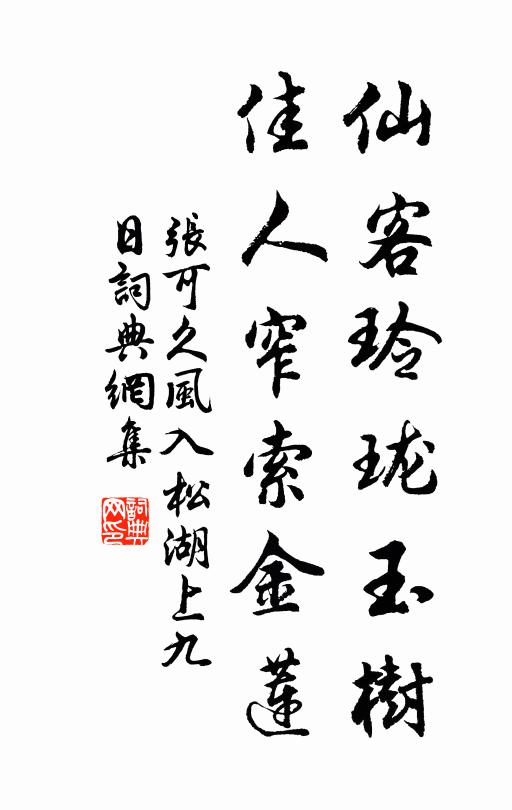 仙客玲珑玉樹
佳人窄索金蓮
張可久風入松湖上九
日詞典網集
詞典
网印